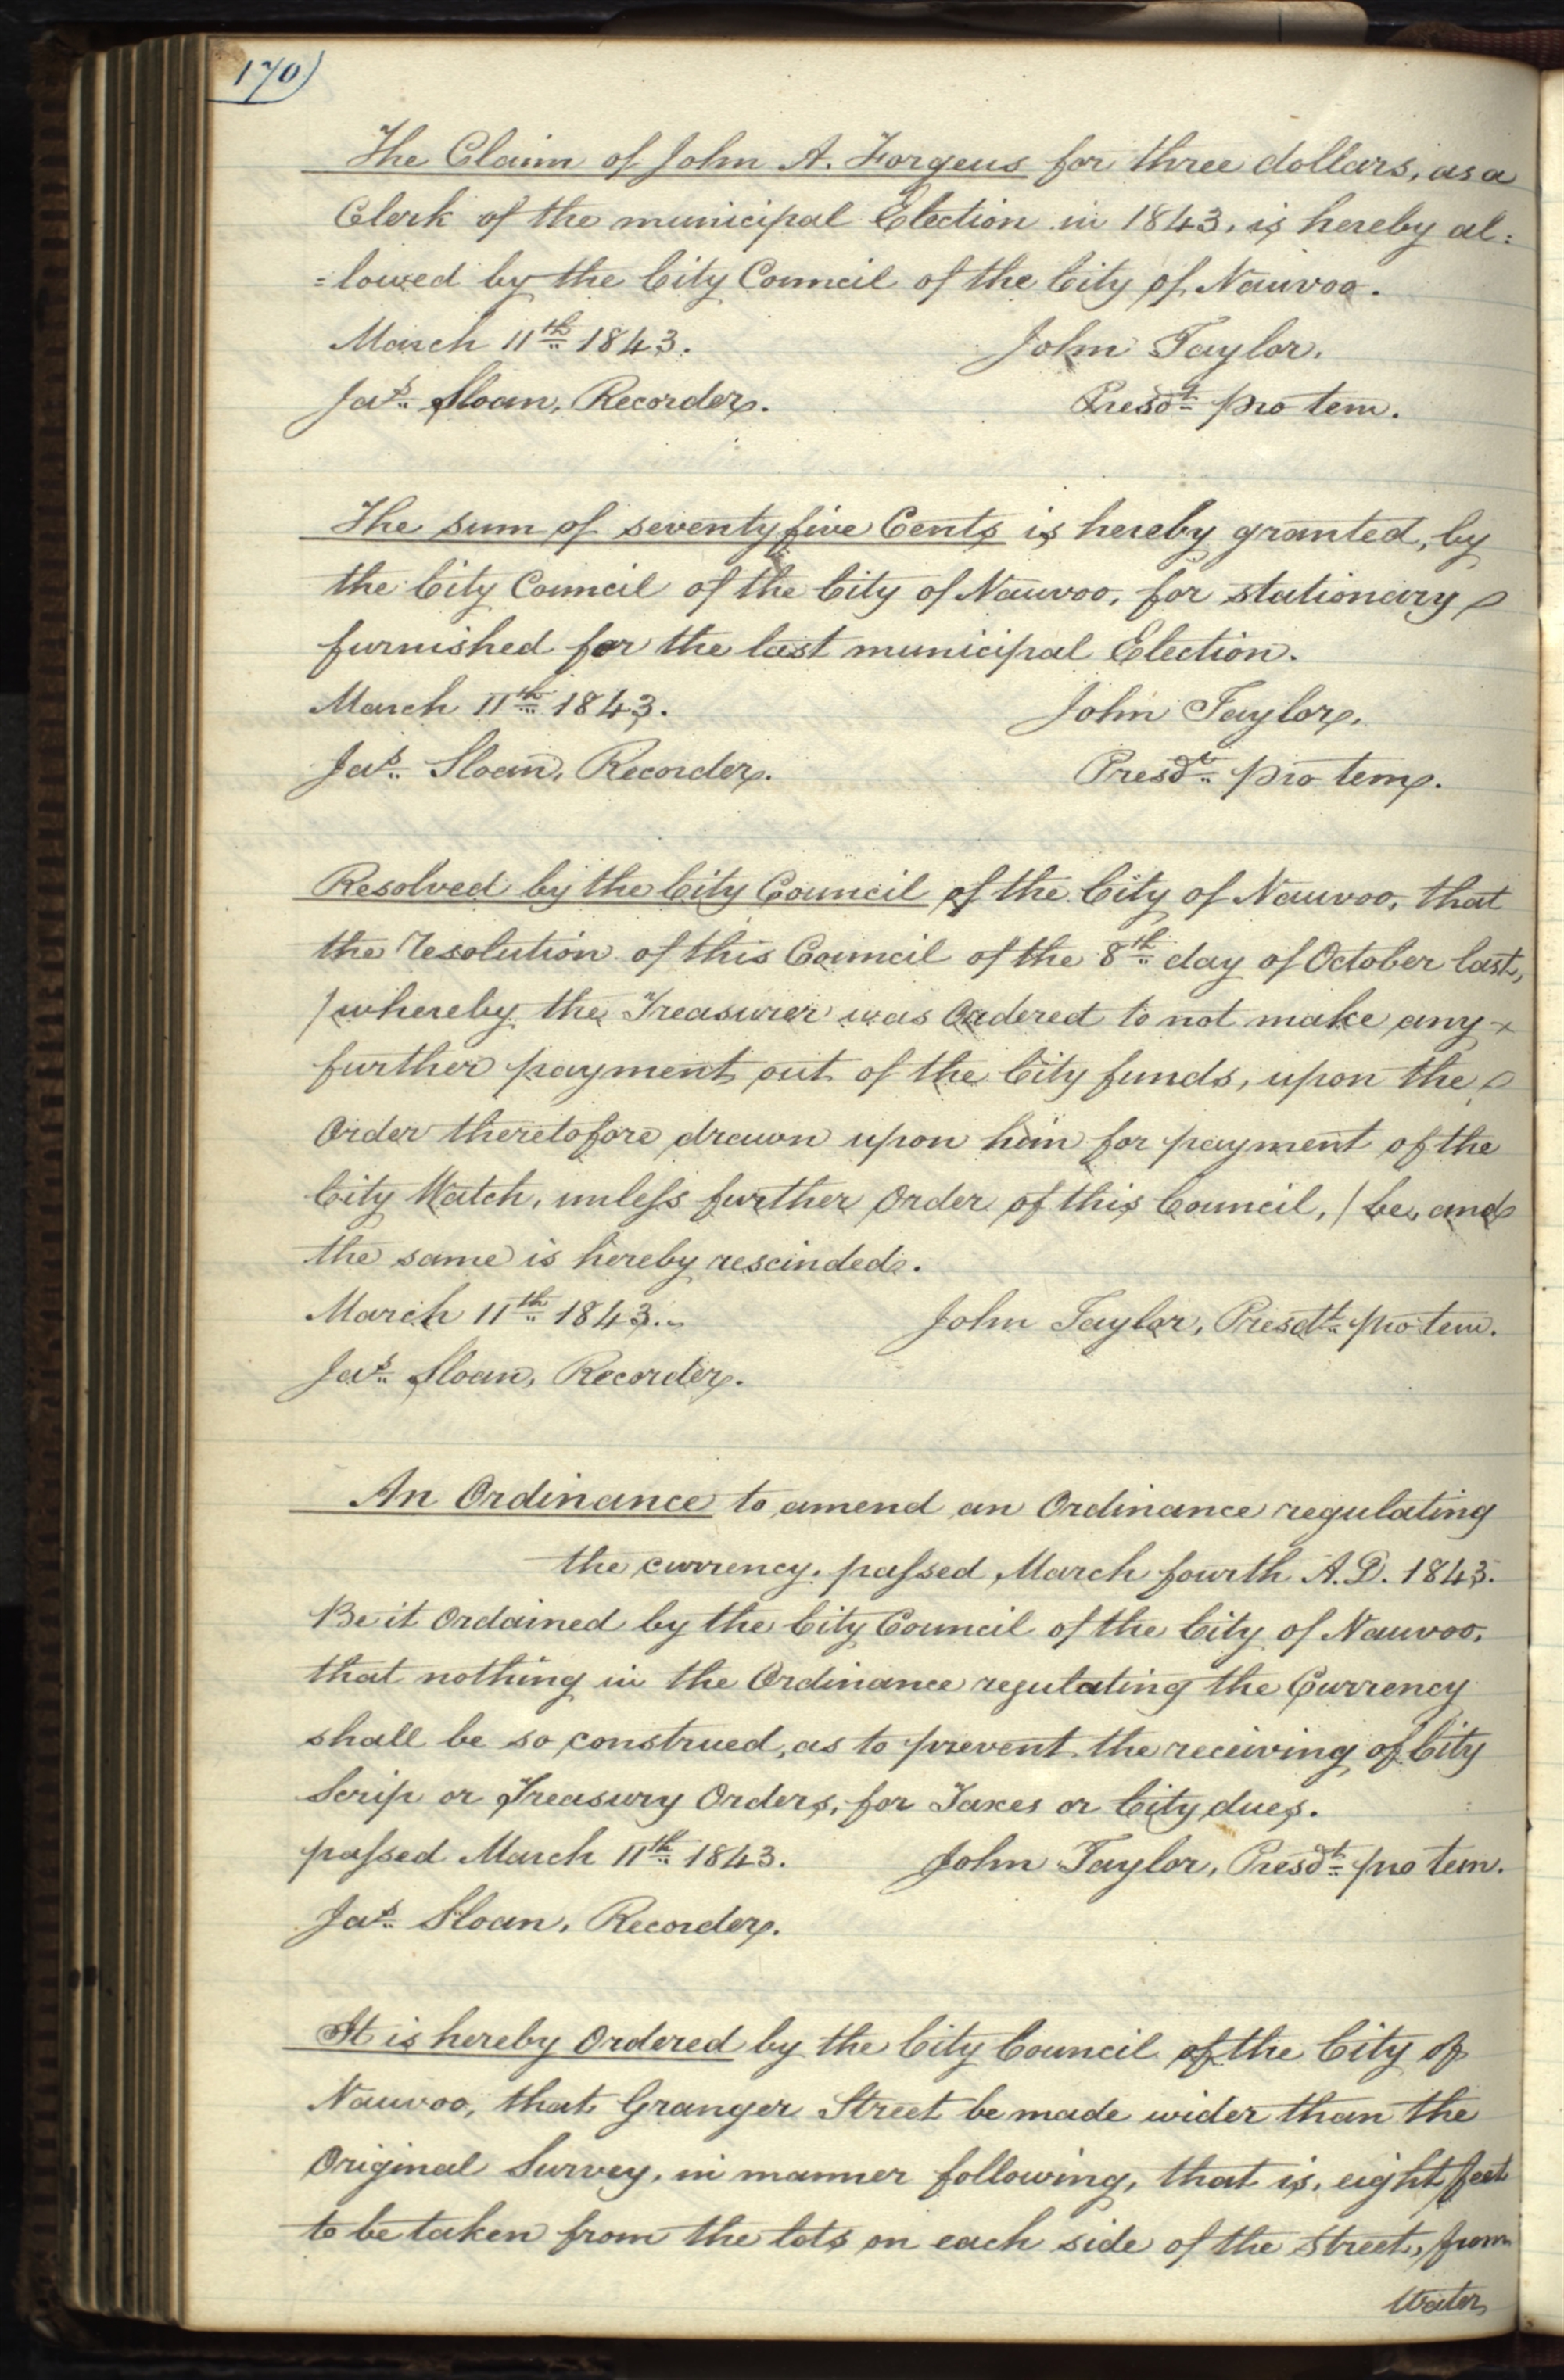 170)
The Claim of John A. Forgeus for three dollars, as a
Clerk of the municipal Election in 1843, is hereby al=
=lowed by the City Council of the City of Nauvoo.
March 11th 1843. John Taylor,
Jas. Sloan, Recorder. Presdt. pro tem.
The sum of seventy five Cents is hereby granted, by
the City Council of the City of Nauvoo, for stationary
furnished for the last municipal Election.
March 11th 1843. John Taylor,
Jas. Sloan, Recorder. Presdt. pro tem.
Resolved by the City Council of the City of Nauvoo, that
the resolution of this Council of the 8th day of October last,
/whereby the Treasurer was Ordered to not make any
further payment out of the City funds, upon the
Order theretofore drawn upon him for payment of the
City Watch, unless further Order of this Council,/ be, and
the same is hereby rescinded.
March 11th 1843. John Taylor, Presdt. pro tem.
Jas. Sloan, Recorder.
An Ordinance to amend an Ordinance regulating
the currency, passed March fourth A.D. 1843.
Be it Ordained by the City Council of the City of Nauvoo,
that nothing in the Ordinance regulating the Currency
shall be so construed, as to prevent the receiving of City
Scrip or Treasury Orders, for Taxes or City dues.
passed March 11th 1843. John Taylor, Presdt. pro tem.
Jas. Sloan, Recorder.
It is hereby Ordered by the City Council of the City of
Nauvoo, that Granger Street be made wider than the
Original Survey, in manner following, that is, eight feet
to be taken from the lots on each side of the Street, from
Water